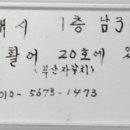 해시 1층 남3
활어 20호에 오
(부산자갈치)
010-5673-1473